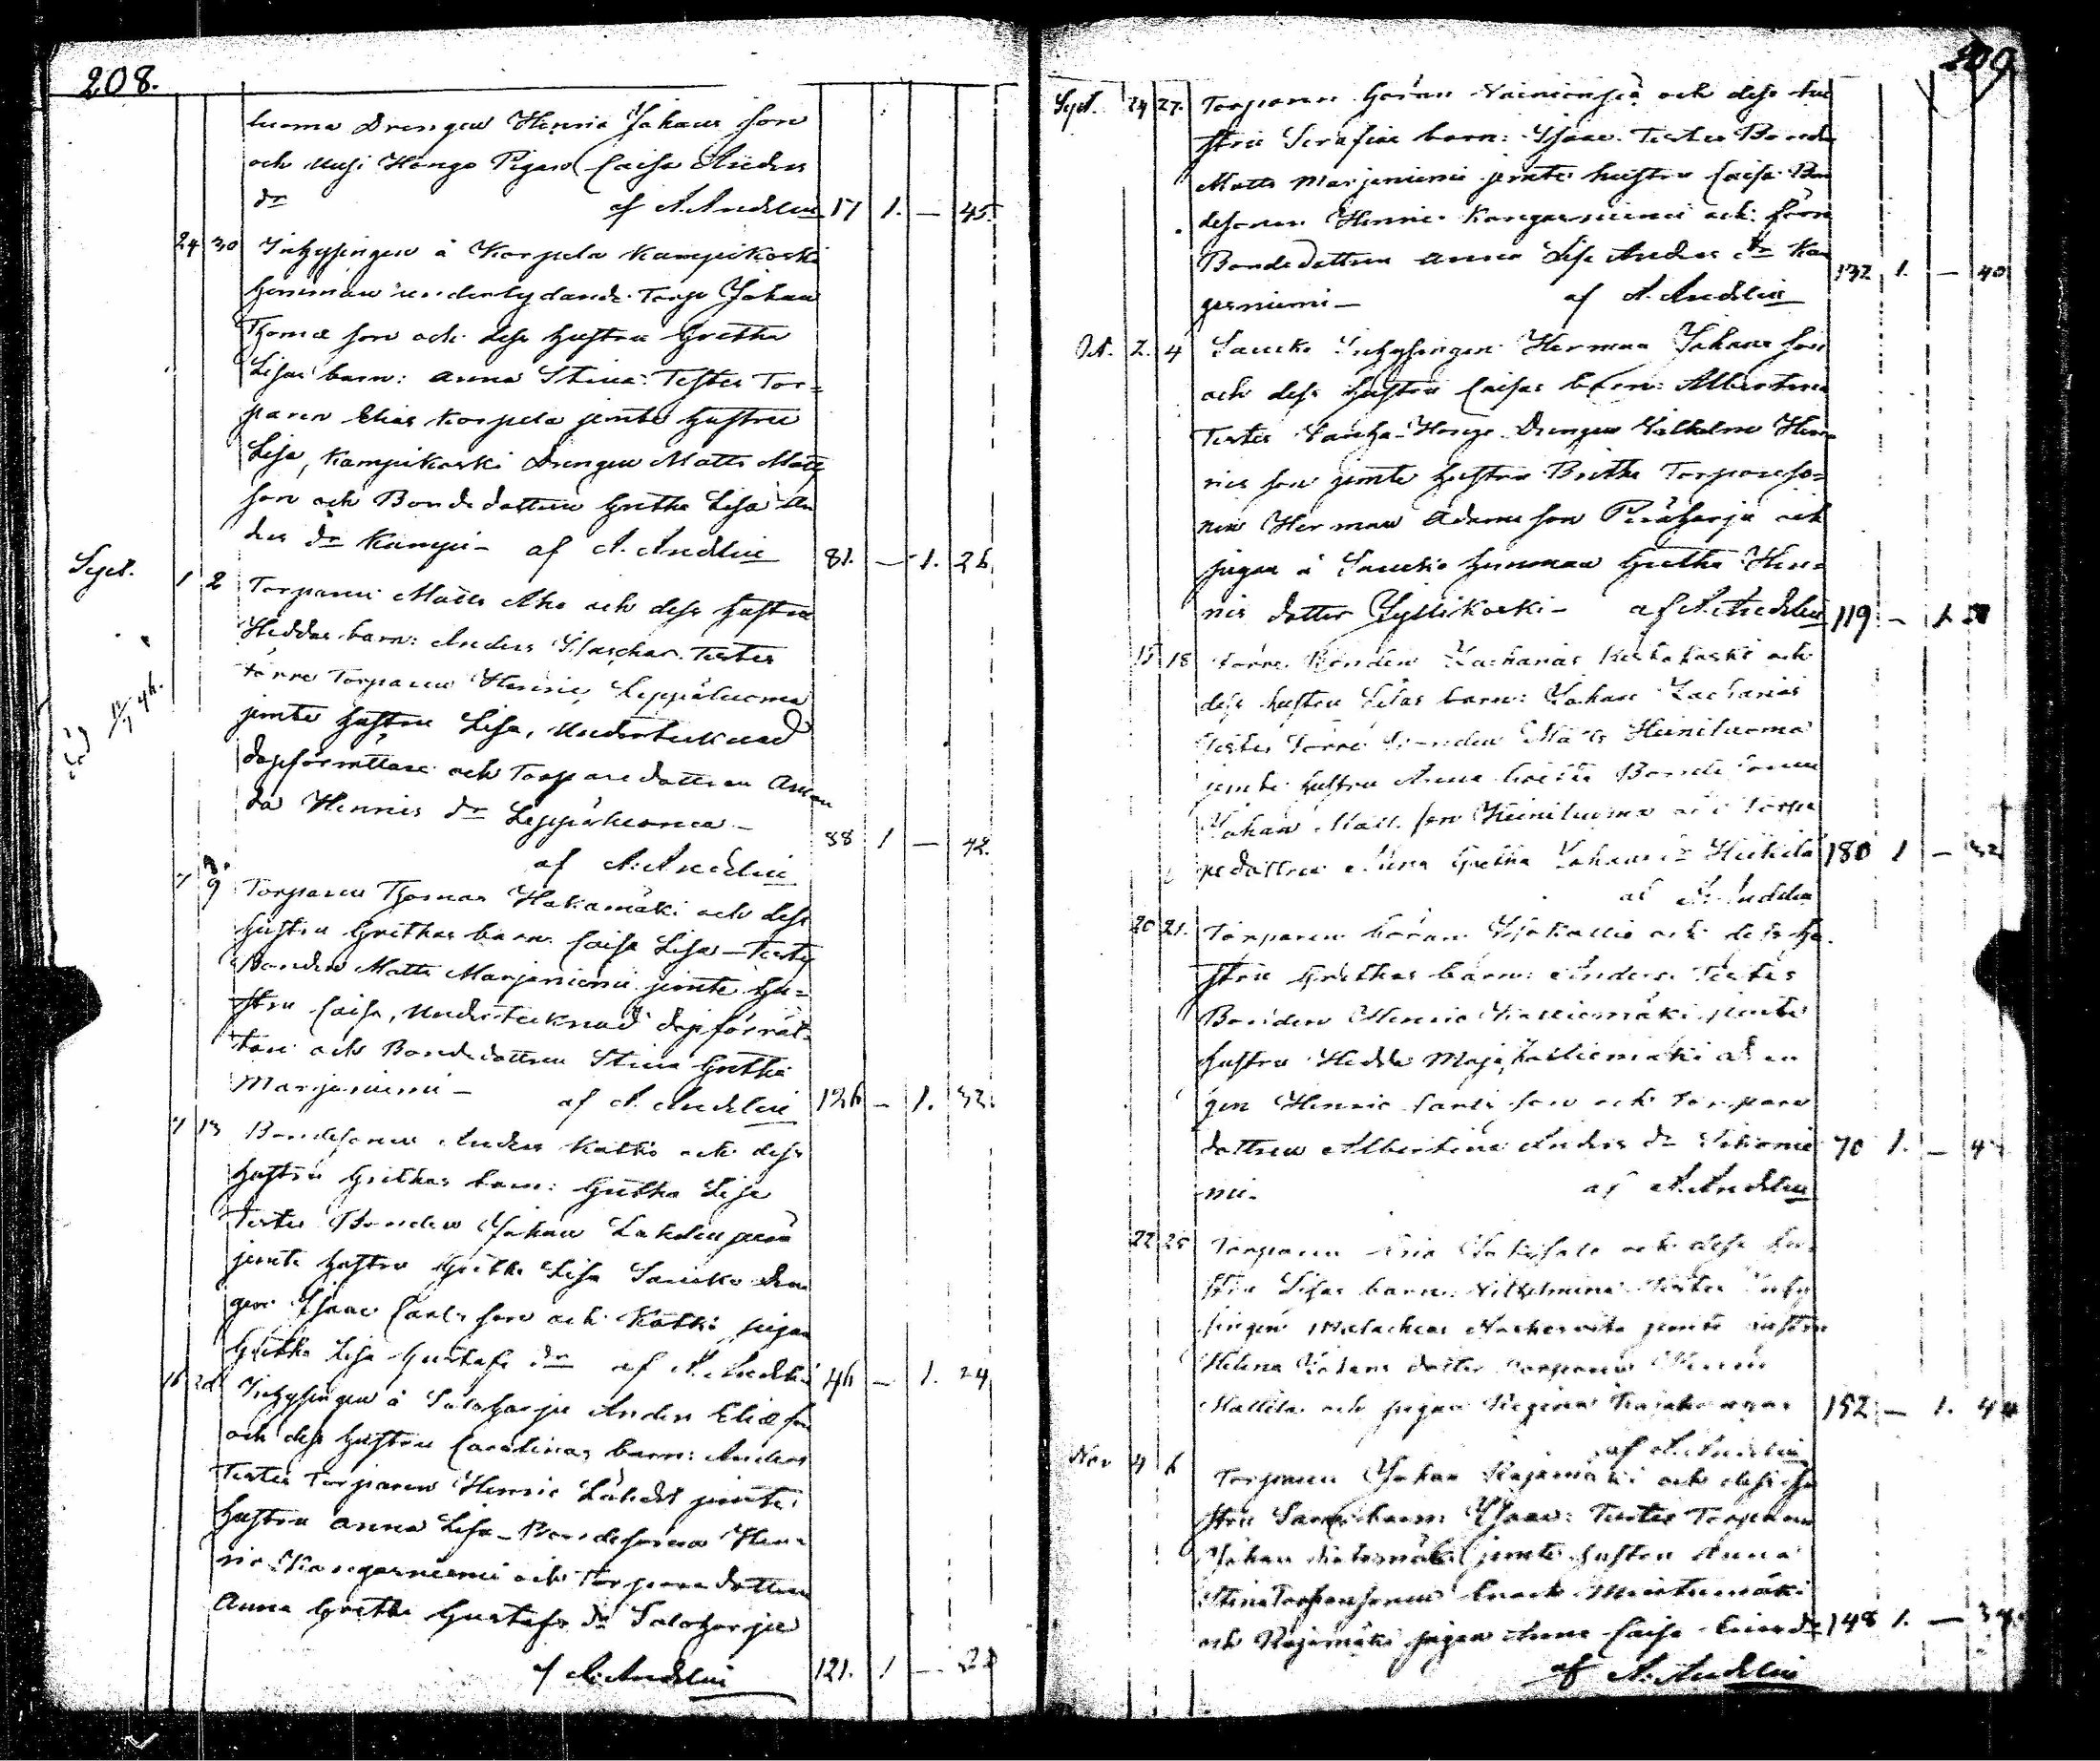 208.
luoma Drengen Henric Johans son
och Uusi Hongo Pigan Caisa Anders
dr af A. Andelin 17 1. — 45.
24 30 Inhysingen å Korpela Kampikoski
hemman underlydande Torp Johan
Thomæ son och dess hustru Gretha
Lisas barn: Anna Stina. Testes Tor=
paren Elias Korpela jemte hustru
Lisa, Kampikoski Drengen Matts Matts
son och Bondedottren Gretha Lisa An
ders dr Kampi— af A. Andelin 81. — 1. 26
Sept. 1 2 Torparen Matts Aho och dess hustru
Heddas barn: Anders . Testes
förre Torparen Henric Leppäluoma
jemte hustru Lisa, Undertecknad
dopförrättare och Torparedottren Aman
da Henrics dr Leppäluoma—
88 1 — 42.
af A. Andelin
7 9 Torparen Thomas Hakamäki och dess
hustru Grethas barn: Caisa Lisa— Testes
Bonden Matts Marjaniemi jemte hu=
stru Caisa, Undertecknad dopförrät=
tare och Bondedottren Stina Gretha
Marjaniemi— af A. Andelin 126 — 1. 32.
7 13 Bondesonen Anders Katko och dess
hustru Grethas barn: Gretha Lisa
Testes Bonden Johan Lahdenperä
jemte hustru Gretha Lisa Saucko Dren
gen Isaac Carls son och Katko pigan
Gretha Lisa Gustafs dr af A. Andelin 46 — 1. 24
16 20 Inhysingen å Saloharju Anders Eliæ son
och dess hustru Carolinas barn: Anders
Testes Torparen Henric Lähdet jemte
hustru Anna Lisa— Bondesonen Hen=
ric Kangasniemi och Torparedottren
Anna Gretha Gustafs dr Saloharju
af A. Andelin 121. 1 — 28
209
Sept. 24 27. Torparen Göran Vainionpää och dess hu
stru Serafias barn: Isaac. Testes Bonden
Matts Marjaniemi jemte hustru Caisa Bon
desonen Henric Kangasniemi och förre
Bondedottren Anna Lisa Anders dr Kan
gasniemi— af A. Andelin 132 1. — 40
Oct. 2. 4 Saucko Inhysingen Herman Johans son
och dess hustru Caisas barn: Albertina
Testes Hongo Drengen Wilhelm Hen=
rics son jemte hustru Britha Torpareso=
nen Herman Adams son Peräharju och
pigan å Saucko hemman Gretha Hen=
rics dotter Jyllikoski— af A. Andelin 119 — 1.
15 18 förre Bonden Zacharias Keskikoski och
dess hustru Lisas barn: Johan Zacharias
Testes förre Bonden Matts Heiniluoma
jemte hustru Anna Gretha Bondesonen
Johan Matts son Heiniluoma och Torpa
redottren Anna Gretha Johans dr Heikkilä 180 1 — 32
af A. Andelin
20 21. Torparen Göran Isokallio och dess hu
stru Grethas barn: Anders. Testes
Bonden Henric Kalliomäki jemte
hustru Hedda Maja, Kalliomäki dren
gen Henric Carls son och Torpare
dottren Albertina Anders dr 70 1. — 4
mi. af A. Andelin
22 25 Torparen Eric och dess hu
stru Lisas barn: Wilhelmina. Testes Inhy
singen Malachias jemte hustru
Helena Johans dotter Torparen Henric
Mattila och pigan Regina 152 — 1. 44
af A. Andelin
Nov 4 6 Torparen Johan Rajamäki och dess hu
stru Saras barn: Isaac: Testes Torparen
Johan jemte hustru Anna
Stina Torparesonen Enoch Mustamäki
och Rajamäki pigan Anna Caisa Erics dr 148 1. — 38.
af A. Andelin